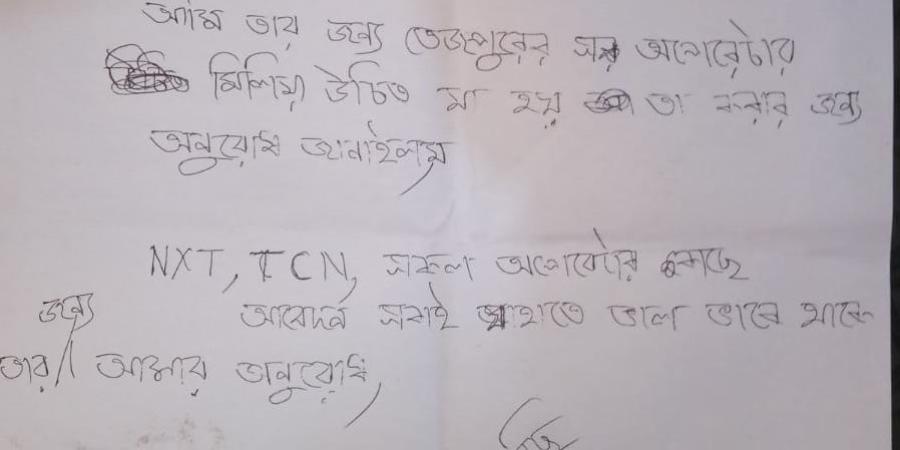 আমি তার জন্য তেজপুরের সব অপারেটার
মিলিয়া উচিত মা হয় তা করার জন্য
অনুরোধ জানাইলাম
NXT, TCN, সকল অপারেটার কাছে
জন্য আবেদন সবাই যাহাতে ভাল ভাবে থাকে
তার/ আমার অনুরোধ,